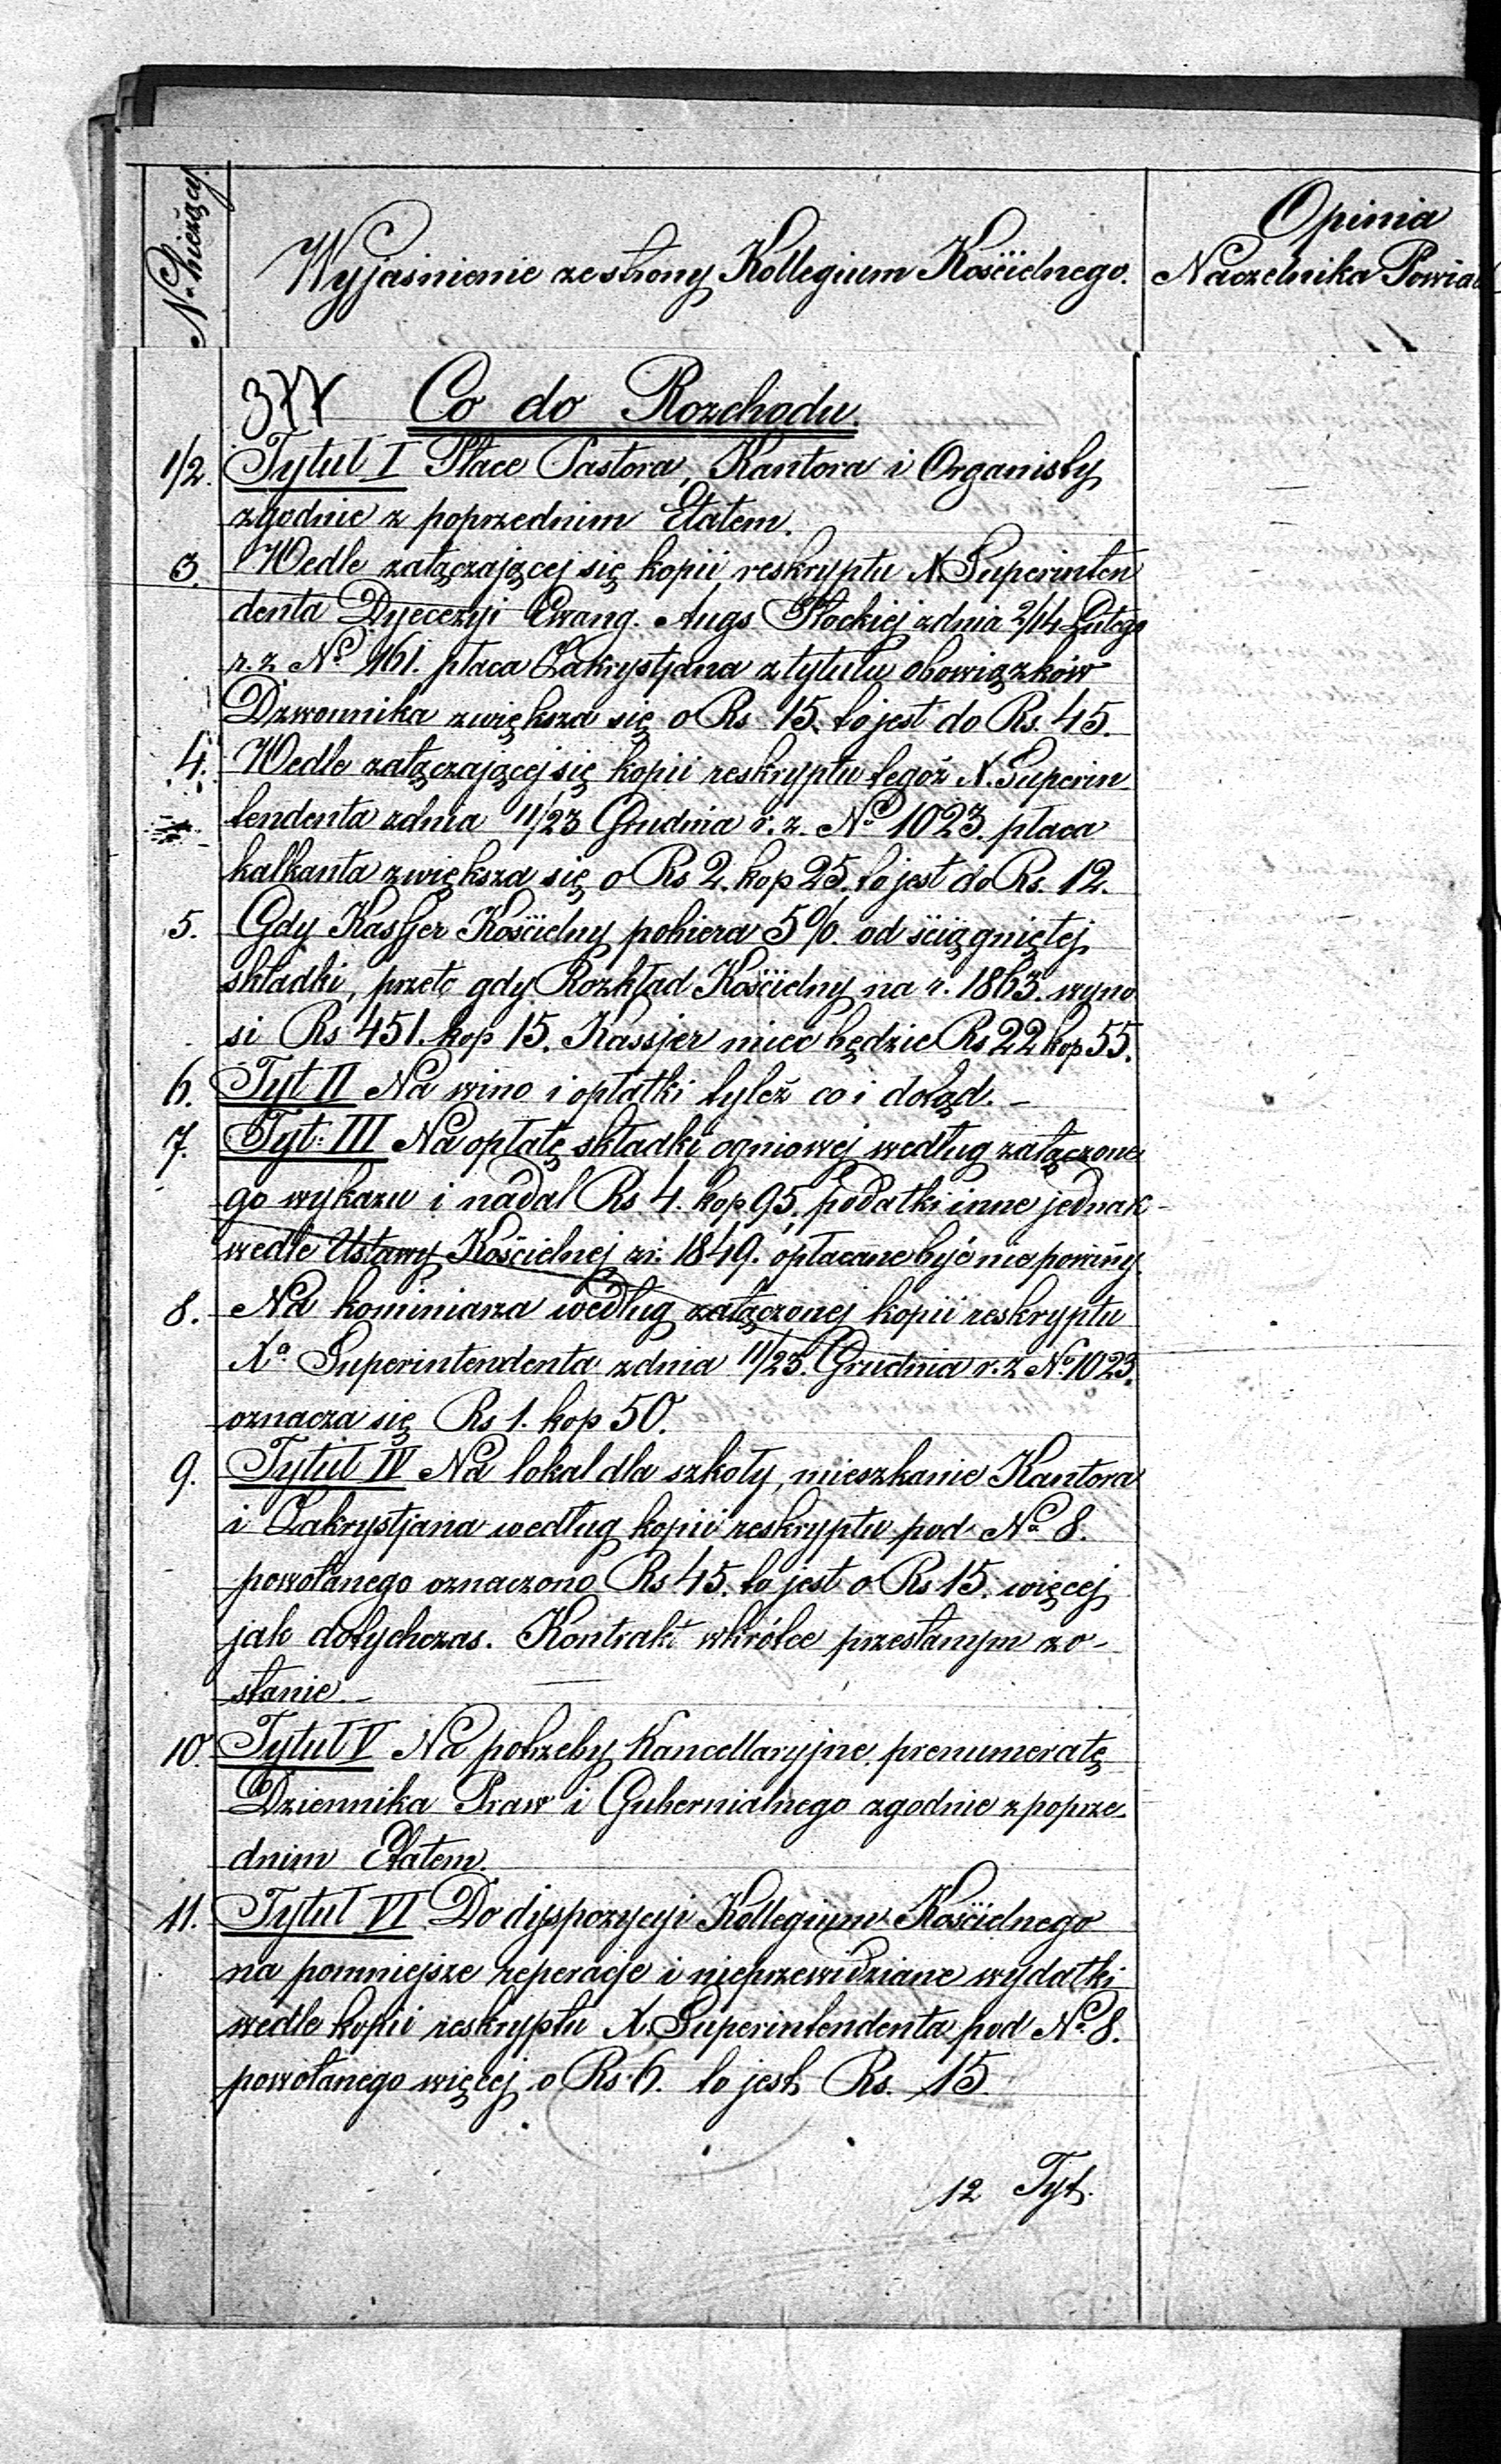 N. bieżący.
Wyjaśnienie ze strony Kollegium Kościelnego.
Opinia
Naczelnika Powiat
377 Co do Rozchodu.
1/2. Tytuł I Płace Pastora, Kantora i Organisty
zgodnie z poprzednim Etatem.
3. Wedle załączającej się kopii reskryptu X. Superinten
denta Dyecezyi Ewang. Augs Płockiej z dnia 2/14 Lutego
r. z No 161. płaca Zakrystjana z tytułu obowiązków
Dzwonnika zwiększa się o Rs 15. to jest do Rs. 45.
4. Wedle załączającej się kopii reskryptu tegoż X. Superin
tendenta z dnia 11/23 Grudnia r. z. No 1023. płaca
kalkanta zwiększa się o Rs 2. kop 25. to jest do Rs. 12.
5. Gdy Kassjer Kościelny pobiera 5%. od ściągniętej
składki, przeto gdy Rozkład Kościelny na r. 1863. wyno
si Rs 451. kop 15. Kassjer mieć będzie Rs 22 kop 55.
6. Tyt II Na wino i opłatki tyleż co i dotąd. -
7. Tyt: III Na opłatę składki ogniowej według załączone
go wykazu i nadal Rs 4. kop 95, podatki inne jednak
wedle Ustawy Kościelnej z r. 1849. opłacane być nie powinny.
8. Na kominiarza według załączonej kopii reskryptu
Xa. Superintendenta z dnia 11/23. Grudnia r. z No 1023.
oznacza się Rs 1. kop 50.
9. Tytuł IV Na lokal dla szkoły, mieszkanie Kantora
i Zakrystjana według kopii reskryptu pod No 8.
powołanego oznaczono Rs 45. to jest o Rs 15. więcej
jak dotychczas. Kontrakt wkrótce przesłanym zo-
stanie. -
10. Tytuł V Na potrzeby Kancellaryjne, prenumeratę
Dziennika Praw i Gubernialnego zgodnie z poprze-
dnim Etatem.
11. Tytuł VI Do dyspozycyi Kollegium Kościelnego
na pomniejsze reperacje i nieprzewidziane wydatki
wedle kopii reskryptu X. Superintendenta pod No 8.
powołanego więcej o Rs 6. to jest Rs. 15.
12 Tyt.